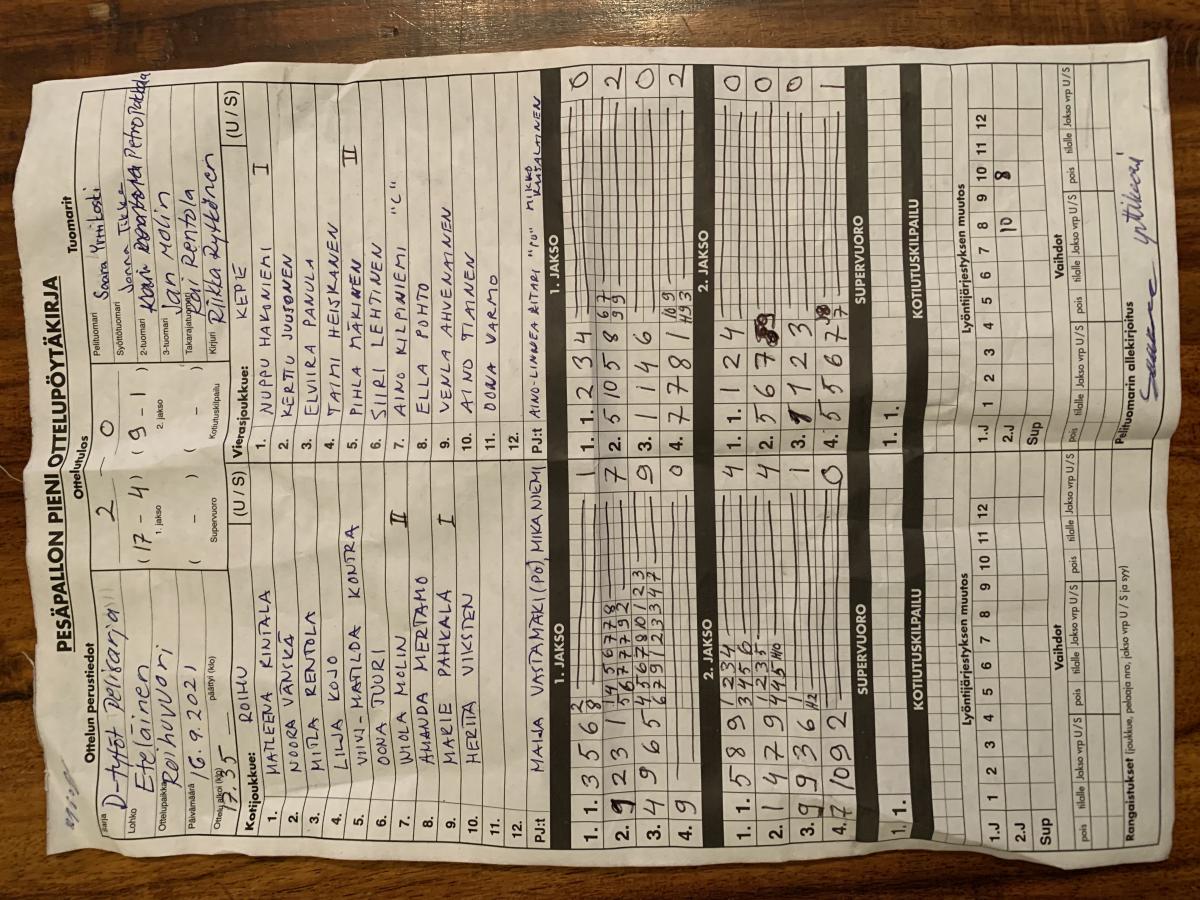 PESÄPALLON PIENI OTTELUPÖYTÄKIRJA
Ottelun perustiedot
Sarja D-tytöt pelisarja
Lohko Eteläinen
Ottelupaikka Roihuvuori
Päivämäärä 16.9.2021
Ottelu alkoi (klo) 17.35 päättyi (klo)
Ottelutulos
2 - 0
(17 - 4) (9 - 1)
1. jakso 2. jakso
( - ) ( - )
Supervuoro Kotiutuskilpailu
Tuomarit
Pelituomari Saara Yrttikoski
Syöttötuomari Janna Tikka
2-tuomari Petro Pakkala
3-tuomari Jan Molin
Takarajatuomari Kari Rentola
Kirjuri Riikka Rytkönen
Kotijoukkue: ROIHU (U / S)
1. MATLEENA RINTALA
2. NOORA VÄNSKÄ
3. MILA RENTOLA
4. LILJA KOJO
5. VIIVI-MATILDA KONTRA
6. OONA JUURI
7. VIOLA MOLIN II
8. AMANDA MERTAMO
9. MARIE PAHKALA I
10. HERTTA VIKSTEN
11.
12.
PJ:t MAIJA VASTAMÄKI (PO), MIKA NIEMI
Vierasjoukkue: KEPIE (U / S)
1. NUPPU HAKONIEMI I
2. KERTTU JUUSONEN
3. ELVIIRA PANULA
4. TAIMI HEISKANEN
5. PIHLA MÄKINEN II
6. SIIRI LEHTINEN
7. AINO KILPINIEMI "C"
8. ELLA POHTO
9. VENLA AHVENAINEN
10. AINO TIAINEN
11. OONA VARMO
12.
PJ:t AINO-LINNEA AITARI "PO" MIKKO
1. JAKSO
1. 1. 3 5 6 6 1
2. 9 2 3 1 7
3. 4 9 6 5 9
4. 9 0
2. JAKSO
1. 1. 5 8 9 4
2. 1 4 7 9 4
3. 9 9 3 6 1
4. 7 10 9 2 0
SUPERVUORO
1. 1.
KOTIUTUSKILPAILU
1. JAKSO
1. 1. 2 3 4 0
2. 5 10 5 8 2
3. 1 1 4 6 0
4. 7 7 8 1 2
2. JAKSO
1. 1. 1 2 4 0
2. 5 6 7 0
3. 1 2 3 0
4. 5 5 6 7 1
SUPERVUORO
1. 1.
KOTIUTUSKILPAILU
Lyöntijärjestyksen muutos
1.J 1 2 3 4 5 6 7 8 9 10 11 12
2.J
Sup
Vaihdot
pois tilalle Jakso vrp U/S pois tilalle Jakso vrp U/S pois tilalle Jakso vrp U/S
Rangaistukset (joukkue, pelaaja nro, jakso vrp U / S ja syy)
Lyöntijärjestyksen muutos
1.J 1 2 3 4 5 6 7 8 9 10 11 12
2.J 10 8
Sup
Vaihdot
pois tilalle Jakso vrp U/S pois tilalle Jakso vrp U/S pois tilalle Jakso vrp U/S
Pelituomarin allekirjoitus